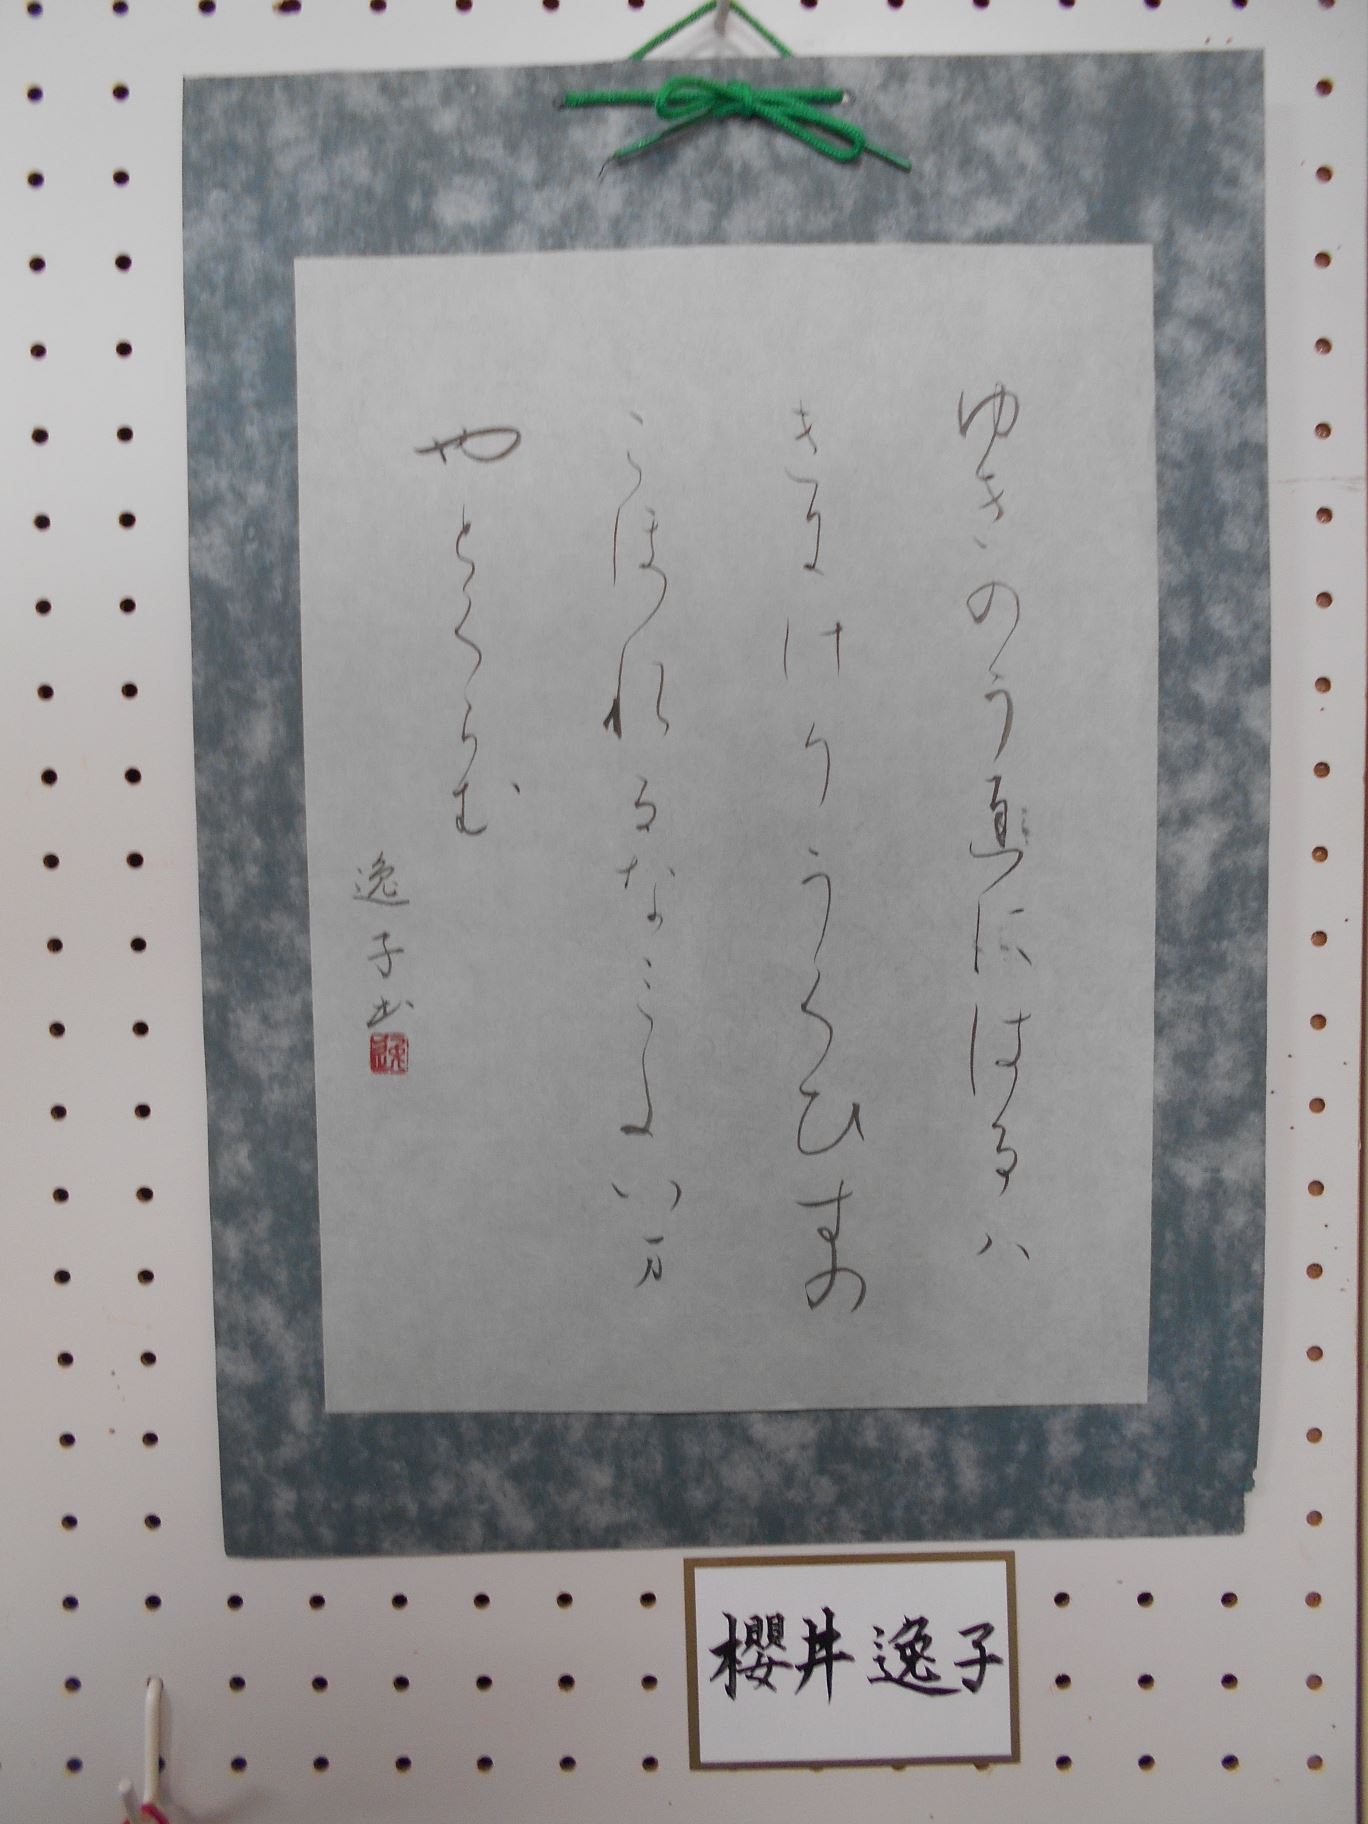 ゆきのう遅にはるハ
きにけりうくひすの
こほれるなみたい万
やとくらむ
逸子書
逸
櫻井逸子